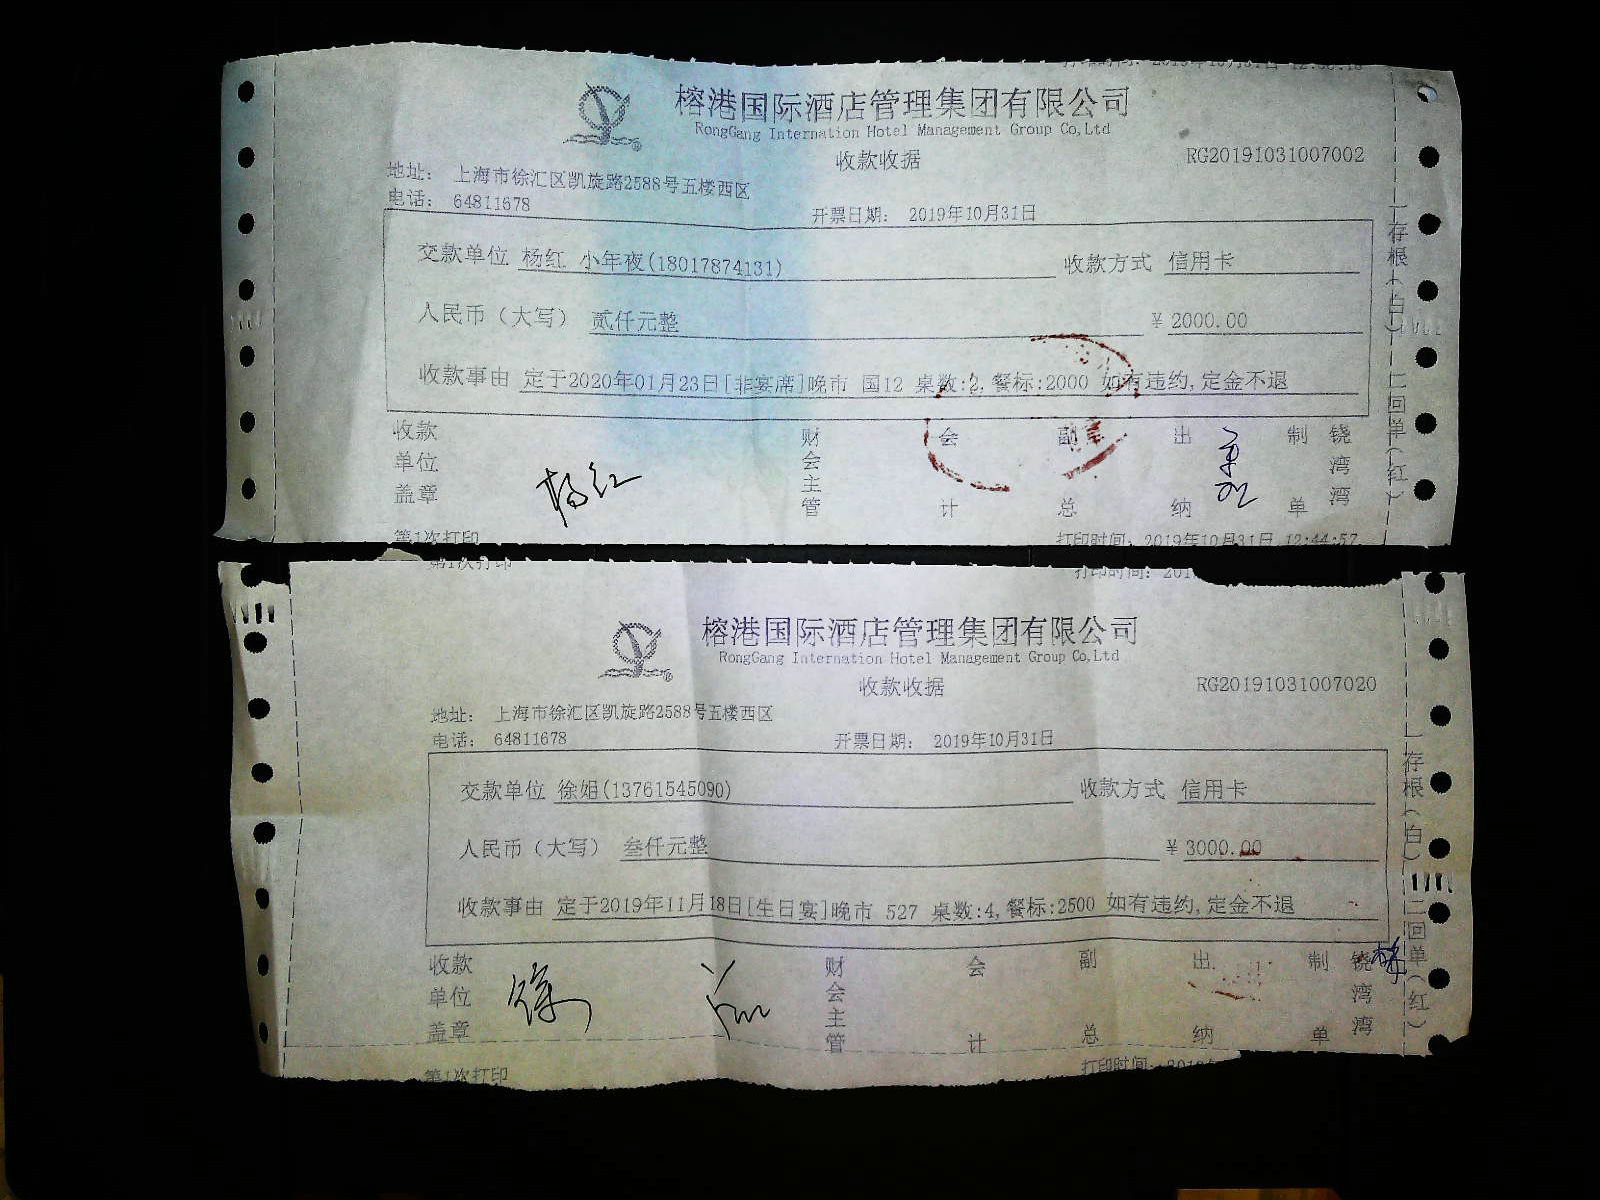 榕港国际酒店管理集团有限公司
RongGang Internation Hotel Management Group Co,Ltd
收款收据
RG20191031007002
地址： 上海市徐汇区凯旋路2588号五楼西区
电话： 64811678
开票日期： 2019年10月31日
交款单位 杨红 小年夜(18017874131) 收款方式 信用卡
人民币（大写） 贰仟元整 ¥ 2000.00
收款事由 定于2020年01月23日[非宴席]晚市 国12 桌数:2,餐标:2000 如有违约,定金不退
收款单位盖章 杨红 财会主管 会计 副总 出纳 制单 饶湾湾
一存根(白) 二回单(红)
第1次打印
打印时间: 2019年10月31日 12:44:57
第1次打印
榕港国际酒店管理集团有限公司
RongGang Internation Hotel Management Group Co,Ltd
收款收据
RG20191031007020
地址： 上海市徐汇区凯旋路2588号五楼西区
电话： 64811678
开票日期： 2019年10月31日
交款单位 徐娟(13761545090) 收款方式 信用卡
人民币（大写） 叁仟元整 ¥ 3000.00
收款事由 定于2019年11月18日[生日宴]晚市 527 桌数:4,餐标:2500 如有违约,定金不退
收款单位盖章 财会主管 会计 副总 出纳 制单 饶湾湾
一存根(白) 二回单(红)
第1次打印
打印时间: